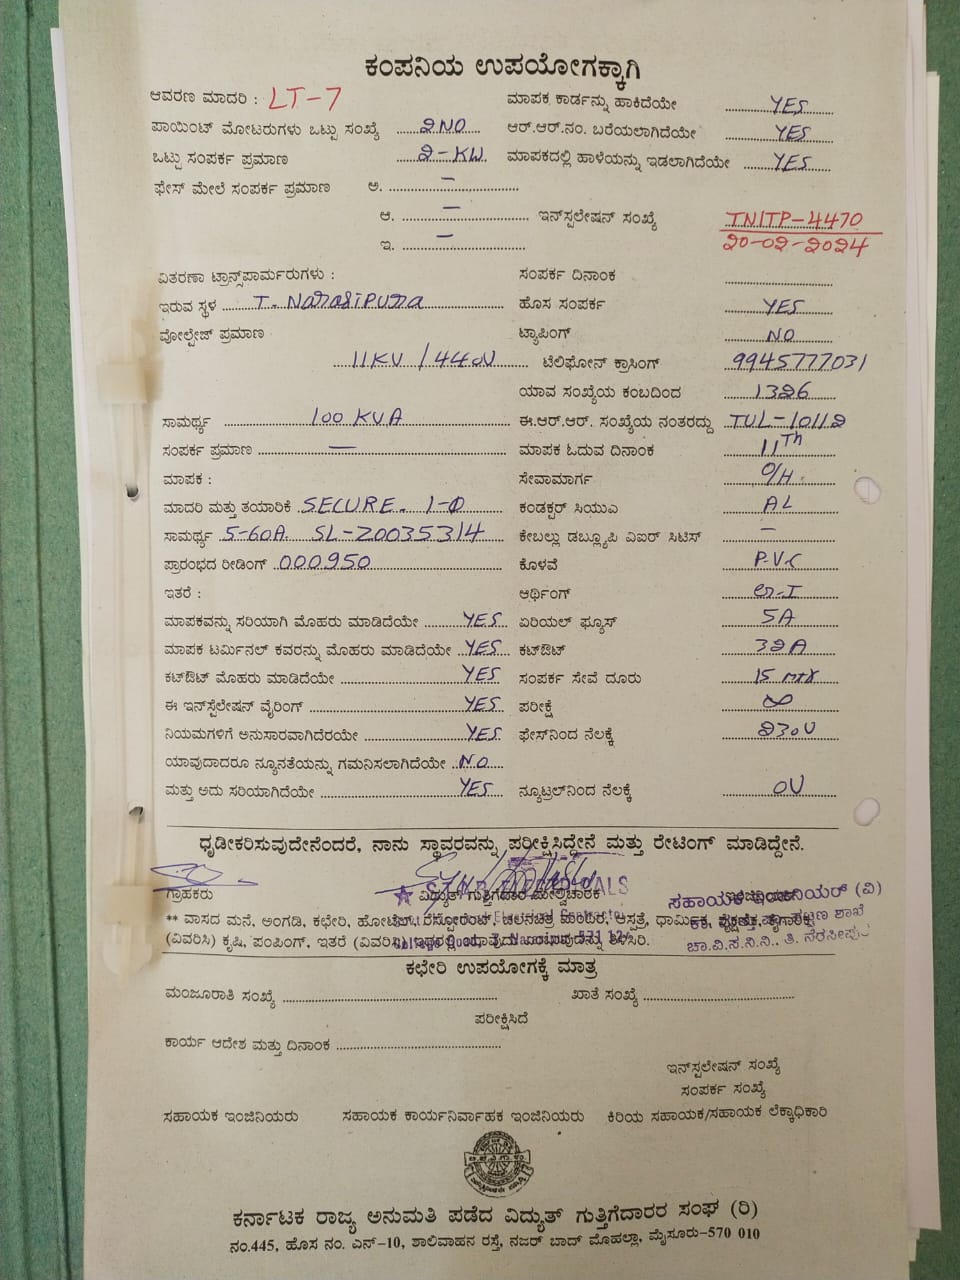 ಕಂಪನಿಯ ಉಪಯೋಗಕ್ಕಾಗಿ
ಆವರಣ ಮಾದರಿ : LT-7 ಮಾಪಕ ಕಾರ್ಡನ್ನು ಹಾಕಿದೆಯೇ YES
ಪಾಯಿಂಟ್ ಮೋಟರುಗಳು ಒಟ್ಟು ಸಂಖ್ಯೆ 2NO ಆರ್.ಆರ್.ನಂ. ಬರೆಯಲಾಗಿದೆಯೇ YES
ಒಟ್ಟು ಸಂಪರ್ಕ ಪ್ರಮಾಣ 2-KW ಮಾಪಕದಲ್ಲಿ ಹಾಳೆಯನ್ನು ಇಡಲಾಗಿದೆಯೇ YES
ಫೇಸ್ ಮೇಲೆ ಸಂಪರ್ಕ ಪ್ರಮಾಣ ಅ. –
ಆ. – ಇನ್‌ಸ್ಪಲೇಷನ್ ಸಂಖ್ಯೆ TNITP-4470
ಇ. – 20-02-2024
ವಿತರಣಾ ಟ್ರಾನ್ಸ್‌ಪಾರ್ಮರುಗಳು : ಸಂಪರ್ಕ ದಿನಾಂಕ
ಇರುವ ಸ್ಥಳ T. Narasipura ಹೊಸ ಸಂಪರ್ಕ YES
ವೋಲ್ಟೇಜ್ ಪ್ರಮಾಣ ಟ್ಯಾಪಿಂಗ್ NO
11KV / 440V ಟೆಲಿಫೋನ್ ಕ್ರಾಸಿಂಗ್ 9945777031
ಯಾವ ಸಂಖ್ಯೆಯ ಕಂಬದಿಂದ 1326
ಸಾಮರ್ಥ್ಯ 100 KVA ಈ.ಆರ್.ಆರ್. ಸಂಖ್ಯೆಯ ನಂತರದ್ದು TUL-10112
ಸಂಪರ್ಕ ಪ್ರಮಾಣ – ಮಾಪಕ ಓದುವ ದಿನಾಂಕ 11Th
ಮಾಪಕ : ಸೇವಾಮಾರ್ಗ O/H.
ಮಾದರಿ ಮತ್ತು ತಯಾರಿಕೆ SECURE. 1-Φ ಕಂಡಕ್ಟರ್ ಸಿಯುಎ AL
ಸಾಮರ್ಥ್ಯ 5-60A. SL-20035314 ಕೇಬಲ್ಲು ಡಬ್ಲ್ಯೂಪಿ ವಿಐಆರ್ ಸಿಟಿಸ್ –
ಪ್ರಾರಂಭದ ರೀಡಿಂಗ್ 000950 ಕೊಳವೆ P.V.C
ಇತರೆ : ಆರ್ಥಿಂಗ್
ಮಾಪಕವನ್ನು ಸರಿಯಾಗಿ ಮೊಹರು ಮಾಡಿದೆಯೇ YES ಏರಿಯಲ್ ಫ್ಯೂಸ್ 5A
ಮಾಪಕ ಟರ್ಮಿನಲ್ ಕವರನ್ನು ಮೊಹರು ಮಾಡಿದೆಯೇ YES ಕಟ್‌ಔಟ್ 32A
ಕಟ್‌ಔಟ್ ಮೊಹರು ಮಾಡಿದೆಯೇ YES ಸಂಪರ್ಕ ಸೇವೆ ದೂರು 15 mtr
ಈ ಇನ್‌ಸ್ಪೆಲೇಷನ್ ವೈರಿಂಗ್ YES ಪರೀಕ್ಷೆ ∞
ನಿಯಮಗಳಿಗೆ ಅನುಸಾರವಾಗಿದೆರಯೇ YES ಫೇಸ್‌ನಿಂದ ನೆಲಕ್ಕೆ 230V
ಯಾವುದಾದರೂ ನ್ಯೂನತೆಯನ್ನು ಗಮನಿಸಲಾಗಿದೆಯೇ NO
ಮತ್ತು ಅದು ಸರಿಯಾಗಿದೆಯೇ YES ನ್ಯೂಟ್ರಲ್‌ನಿಂದ ನೆಲಕ್ಕೆ 0V
ಧೃಡೀಕರಿಸುವುದೇನೆಂದರೆ, ನಾನು ಸ್ಥಾವರವನ್ನು ಪರೀಕ್ಷಿಸಿದ್ದೇನೆ ಮತ್ತು ರೇಟಿಂಗ್ ಮಾಡಿದ್ದೇನೆ.
ಗ್ರಾಹಕರು ವಿದ್ಯುತ್ ಗುತ್ತಿಗೆದಾರ ಮೇಲ್ವಿಚಾರಕ ಸಹಾಯಕ ಇಂಜಿನಿಯರ್ (ವಿ)
** ವಾಸದ ಮನೆ, ಅಂಗಡಿ, ಕಛೇರಿ, ಹೋಟೆಲ್, ರೆಸ್ಟೋರೆಂಟ್, ಚಲನಚಿತ್ರ ಮಂದಿರ, ಆಸ್ಪತ್ರೆ, ಧಾರ್ಮಿಕ,
(ವಿವರಿಸಿ) ಕೃಷಿ, ಪಂಪಿಂಗ್, ಇತರೆ (ವಿವರಿಸಿ) ಇದರಲ್ಲಿ ಯಾವುದು ಎಂಬುವುದನ್ನು ತಿಳಿಸಿರಿ. ಚಾ.ವಿ.ಸ.ನಿ.ನಿ., ತಿ. ನರಸೀಪುರ
ಕಛೇರಿ ಉಪಯೋಗಕ್ಕೆ ಮಾತ್ರ
ಮಂಜೂರಾತಿ ಸಂಖ್ಯೆ ಖಾತೆ ಸಂಖ್ಯೆ
ಪರೀಕ್ಷಿಸಿದೆ
ಕಾರ್ಯ ಆದೇಶ ಮತ್ತು ದಿನಾಂಕ
ಇನ್‌ಸ್ಪಲೇಷನ್ ಸಂಖ್ಯೆ
ಸಂಪರ್ಕ ಸಂಖ್ಯೆ
ಸಹಾಯಕ ಇಂಜಿನಿಯರು ಸಹಾಯಕ ಕಾರ್ಯನಿರ್ವಾಹಕ ಇಂಜಿನಿಯರು ಕಿರಿಯ ಸಹಾಯಕ/ಸಹಾಯಕ ಲೆಕ್ಕಾಧಿಕಾರಿ
ಕರ್ನಾಟಕ ರಾಜ್ಯ ಅನುಮತಿ ಪಡೆದ ವಿದ್ಯುತ್ ಗುತ್ತಿಗೆದಾರರ ಸಂಘ (ರಿ)
ನಂ.445, ಹೊಸ ನಂ. ಎನ್-10, ಶಾಲಿವಾಹನ ರಸ್ತೆ, ನಜರ್ ಬಾದ್ ಮೊಹಲ್ಲಾ, ಮೈಸೂರು-570 010